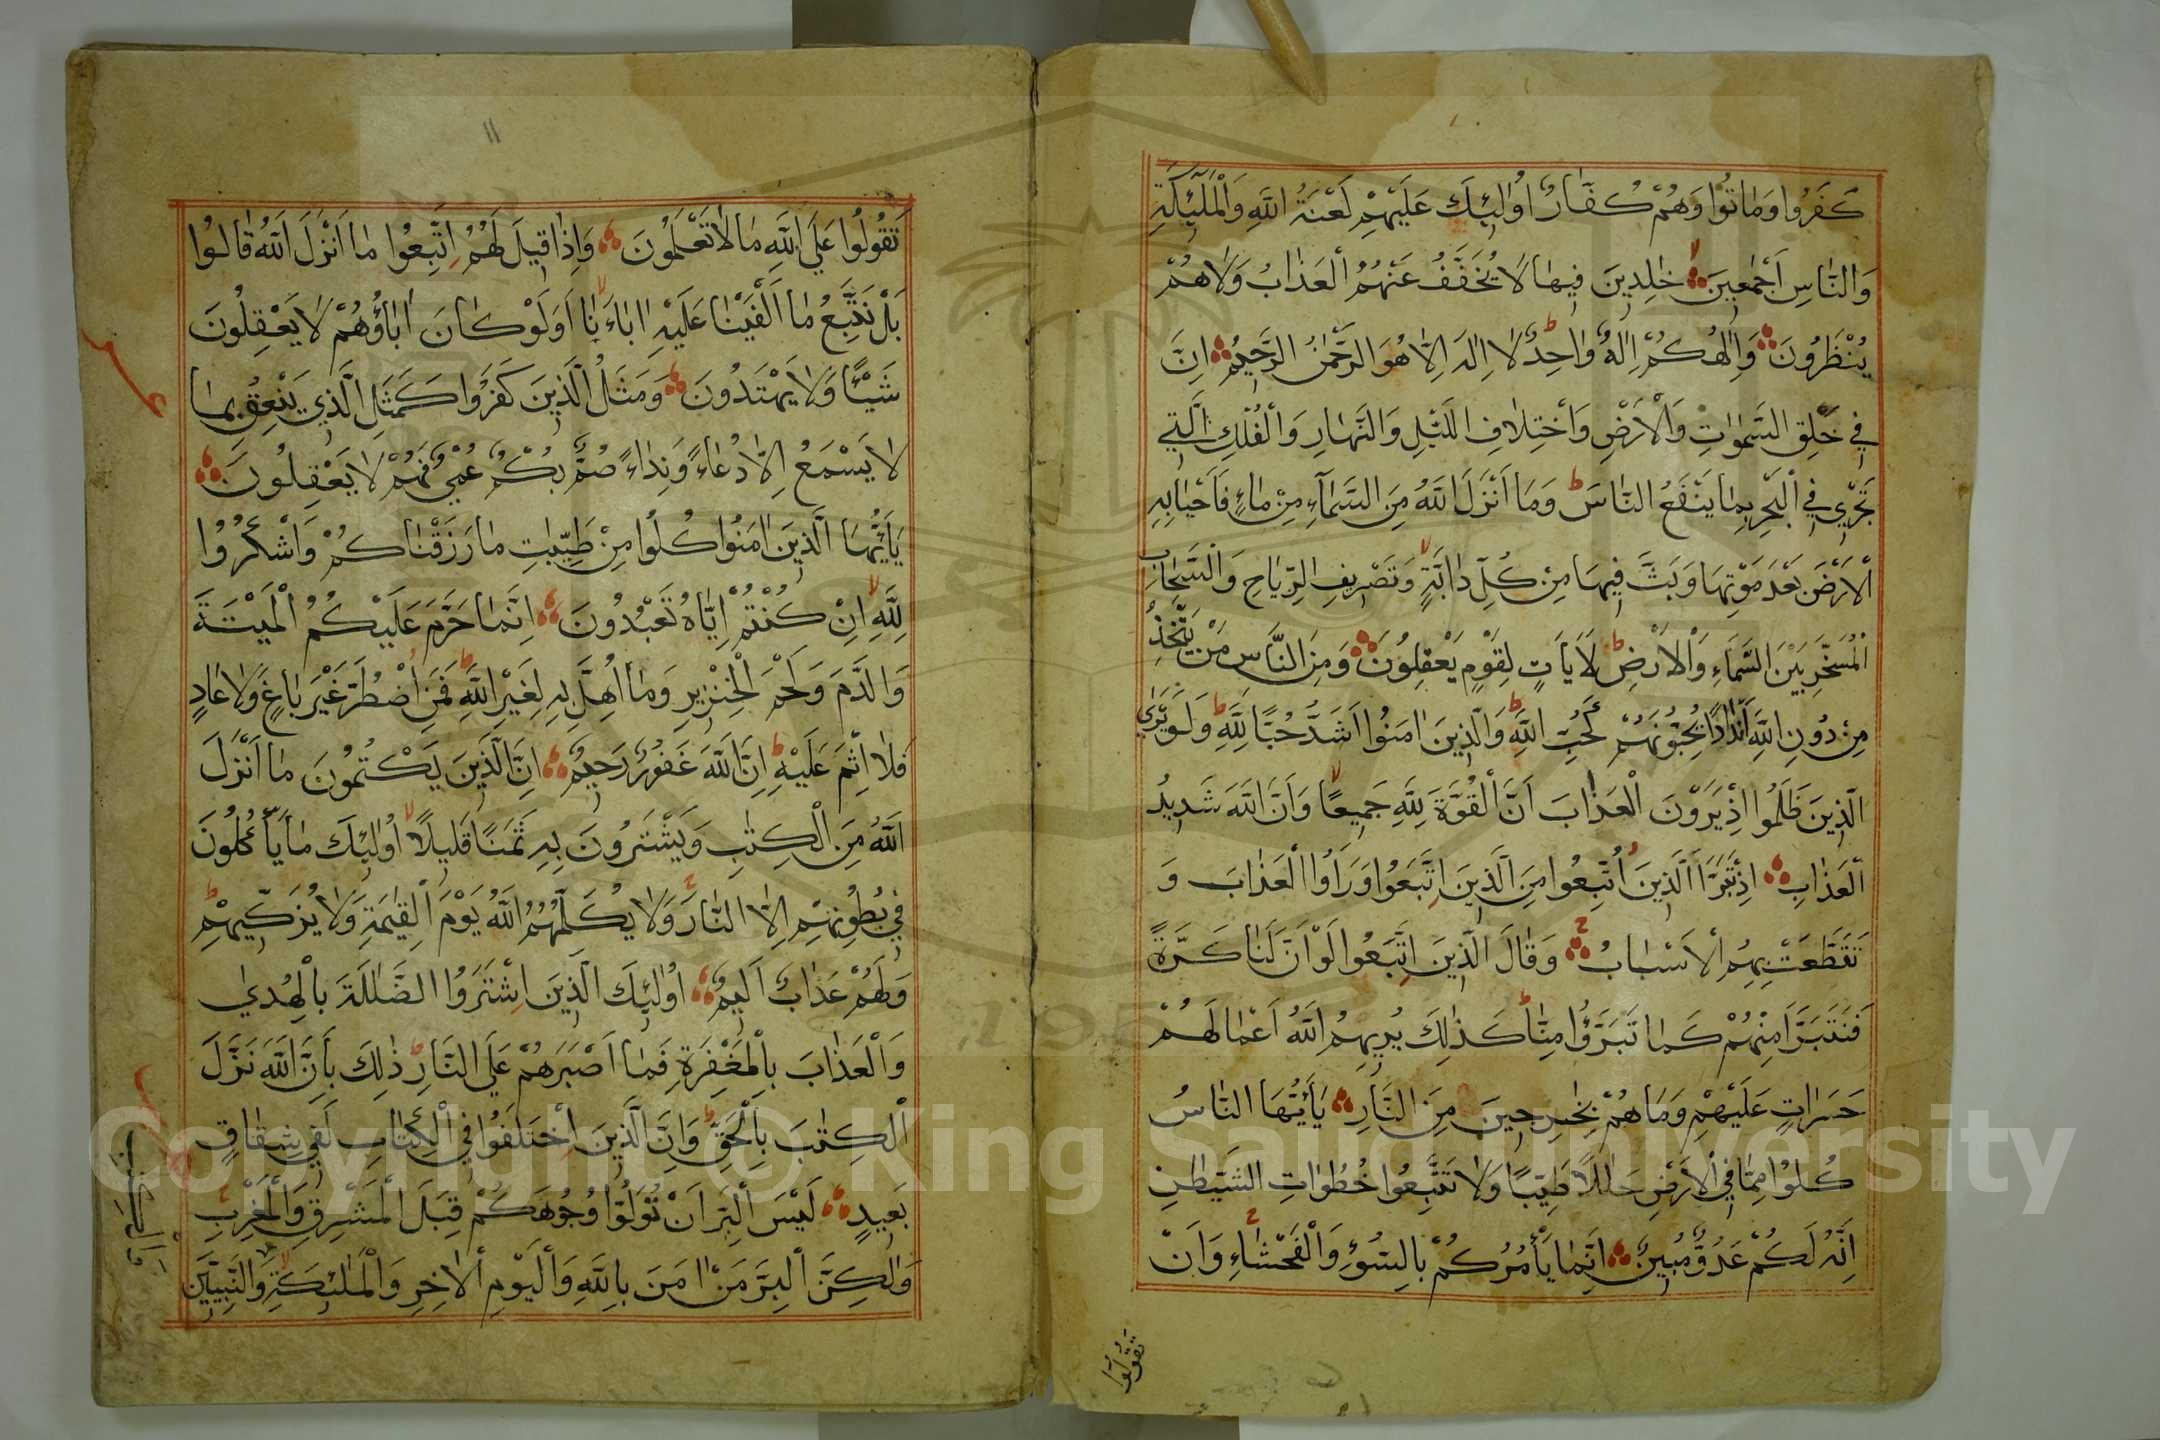 كَفَرُوا وَمَاتُوا وَهُمْ كُفَّارٌ اُولٰئِكَ عَلَيْهِمْ لَعْنَةُ اللّٰهِ وَالْمَلٰٓئِكَةِ
وَالنَّاسِ اَجْمَعِينَ خٰلِدِينَ فِيهَا لَا يُخَفَّفُ عَنْهُمُ الْعَذَابُ وَلَا هُمْ
يُنْظَرُونَ وَاِلٰهُكُمْ اِلٰهٌ وَاحِدٌ لَا اِلٰهَ اِلَّا هُوَ الرَّحْمٰنُ الرَّحِيمُ اِنَّ
فِي خَلْقِ السَّمٰوَاتِ وَالْاَرْضِ وَاخْتِلَافِ اللَّيْلِ وَالنَّهَارِ وَالْفُلْكِ الَّتِي
تَجْرِي فِي الْبَحْرِ بِمَا يَنْفَعُ النَّاسَ وَمَا اَنْزَلَ اللّٰهُ مِنَ السَّمَآءِ مِنْ مَاءٍ فَاَحْيَا بِهِ
الْاَرْضَ بَعْدَ مَوْتِهَا وَبَثَّ فِيهَا مِنْ كُلِّ دَابَّةٍ وَتَصْرِيفِ الرِّيَاحِ وَالسَّحَابِ
الْمُسَخَّرِ بَيْنَ السَّمَاءِ وَالْاَرْضِ لَاٰيَاتٍ لِقَوْمٍ يَعْقِلُونَ وَمِنَ النَّاسِ مَنْ يَتَّخِذُ
مِنْ دُونِ اللّٰهِ اَنْدَادًا يُحِبُّونَهُمْ كَحُبِّ اللّٰهِ وَالَّذِينَ اٰمَنُوا اَشَدُّ حُبًّا لِلّٰهِ وَلَوْ يَرَى
الَّذِينَ ظَلَمُوا اِذْ يَرَوْنَ الْعَذَابَ اَنَّ الْقُوَّةَ لِلّٰهِ جَمِيعًا وَاَنَّ اللّٰهَ شَدِيدُ
الْعَذَابِ اِذْ تَبَرَّاَ الَّذِينَ اتُّبِعُوا مِنَ الَّذِينَ اتَّبَعُوا وَرَاَوُا الْعَذَابَ وَ
تَقَطَّعَتْ بِهِمُ الْاَسْبَابُ وَقَالَ الَّذِينَ اتَّبَعُوا لَوْ اَنَّ لَنَا كَرَّةً
فَنَتَبَرَّاَ مِنْهُمْ كَمَا تَبَرَّؤُا مِنَّا كَذٰلِكَ يُرِيهِمُ اللّٰهُ اَعْمَالَهُمْ
حَسَرَاتٍ عَلَيْهِمْ وَمَا هُمْ بِخٰرِجِينَ مِنَ النَّارِ يَاۤ اَيُّهَا النَّاسُ
كُلُوا مِمَّا فِي الْاَرْضِ حَلٰلًا طَيِّبًا وَلَا تَتَّبِعُوا خُطُوَاتِ الشَّيْطٰنِ
اِنَّهُ لَكُمْ عَدُوٌّ مُبِينٌ اِنَّمَا يَأْمُرُكُمْ بِالسُّوءِ وَالْفَحْشَاءِ وَاَنْ
تَقُولُوا
١١
تَقُولُوا عَلَى اللّٰهِ مَا لَا تَعْلَمُونَ وَاِذَا قِيلَ لَهُمُ اتَّبِعُوا مَا اَنْزَلَ اللّٰهُ قَالُوا
بَلْ نَتَّبِعُ مَا اَلْفَيْنَا عَلَيْهِ اٰبَاءَنَا اَوَلَوْ كَانَ اٰبَاؤُهُمْ لَا يَعْقِلُونَ
شَيْئًا وَلَا يَهْتَدُونَ وَمَثَلُ الَّذِينَ كَفَرُوا كَمَثَلِ الَّذِي يَنْعِقُ بِمَا
لَا يَسْمَعُ اِلَّا دُعَاءً وَنِدَاءً صُمٌّ بُكْمٌ عُمْيٌ فَهُمْ لَا يَعْقِلُونَ
يَاۤ اَيُّهَا الَّذِينَ اٰمَنُوا كُلُوا مِنْ طَيِّبٰتِ مَا رَزَقْنَاكُمْ وَاشْكُرُوا
لِلّٰهِ اِنْ كُنْتُمْ اِيَّاهُ تَعْبُدُونَ اِنَّمَا حَرَّمَ عَلَيْكُمُ الْمَيْتَةَ
وَالدَّمَ وَلَحْمَ الْخِنْزِيرِ وَمَا اُهِلَّ بِهِ لِغَيْرِ اللّٰهِ فَمَنِ اضْطُرَّ غَيْرَ بَاغٍ وَلَا عَادٍ
فَلَا اِثْمَ عَلَيْهِ اِنَّ اللّٰهَ غَفُورٌ رَحِيمٌ اِنَّ الَّذِينَ يَكْتُمُونَ مَا اَنْزَلَ
اللّٰهُ مِنَ الْكِتٰبِ وَيَشْتَرُونَ بِهِ ثَمَنًا قَلِيلًا اُولٰئِكَ مَا يَأْكُلُونَ
فِي بُطُونِهِمْ اِلَّا النَّارَ وَلَا يُكَلِّمُهُمُ اللّٰهُ يَوْمَ الْقِيٰمَةِ وَلَا يُزَكِّيهِمْ
وَلَهُمْ عَذَابٌ اَلِيمٌ اُولٰئِكَ الَّذِينَ اشْتَرَوُا الضَّلٰلَةَ بِالْهُدٰى
وَالْعَذَابَ بِالْمَغْفِرَةِ فَمَا اَصْبَرَهُمْ عَلَى النَّارِ ذٰلِكَ بِاَنَّ اللّٰهَ نَزَّلَ
الْكِتٰبَ بِالْحَقِّ وَاِنَّ الَّذِينَ اخْتَلَفُوا فِي الْكِتَابِ لَفِي شِقَاقٍ
بَعِيدٍ لَيْسَ الْبِرَّ اَنْ تُوَلُّوا وُجُوهَكُمْ قِبَلَ الْمَشْرِقِ وَالْمَغْرِبِ
وَلٰكِنَّ الْبِرَّ مَنْ اٰمَنَ بِاللّٰهِ وَالْيَوْمِ الْاٰخِرِ وَالْمَلٰئِكَةِ وَالنَّبِيّٖنَ
Copyright © King Saud University